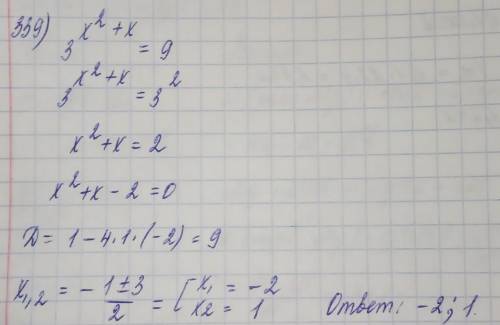 339)
3^{x^2+x} = 9
3^{x^2+x} = 3^2
x^2+x = 2
x^2+x-2=0
D = 1-4·1·(-2) = 9
x_{1,2} = \frac{-1±3}{2} = [x_1 = -2
x2 = 1
Ответ: -2; 1.